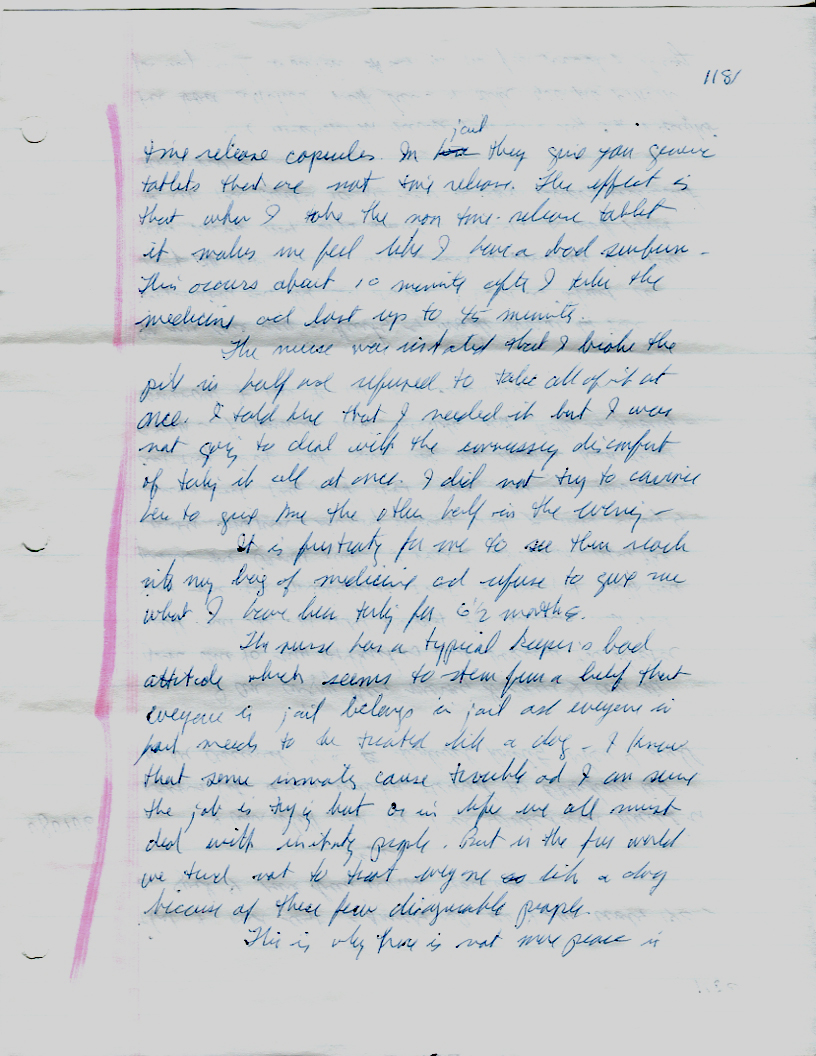 118
jail
time release capsules. In they give you generic
tablets that are not time release. The effect is
that when I take the non time-release tablet
it makes me feel like I have a bad sunburn.
This occurs about 10 minute after I take the
medicine, ad last up to 45 minutes.
The nurse was irritated that I broke the
pill in half and refused to take all of it at
once. I told her that I needed it but I was
not going to deal with the unnecessary discomfort
of taking it all at once. I did not try to convince
her to give me the other half in the evening -
It is frustrating for me to see them reach
into my bag of medicine ad refuse to give me
what I have been taking for 6½ months.
The nurse has a typical keeper's bad
attitude which seems to stem from a belief that
everyone in jail belongs in jail and everyone in
jail needs to be treated like a dog - I know
that some inmates cause trouble ad I am sure
the job is trying but as in life we all must
deal with irritating people. But in the free world
we tend not to treat everyone like a dog
because of these few disagreeable people.
This is why there is not more peace in